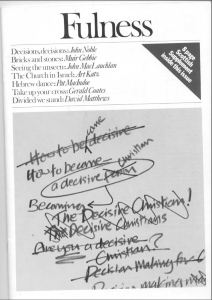 Fulness
Decisions, decisions: John Noble
Bricks and stones: Muir Gebbie
Seeing the unseen: John MacLauchlan
The Church in Israel: Art Katz
Hebrew dance: Pat MacIndoe
Take up your cross: Gerald Coates
Divided we stand: David Matthews
8 page
Scottish
Supplement
inside this issue
become
How to be decisive
How to become Christian
a decisive
Becoming
The Decisive Christian!
Decisive Christians
Are you a decisive
Christian?
Decision Making for
making